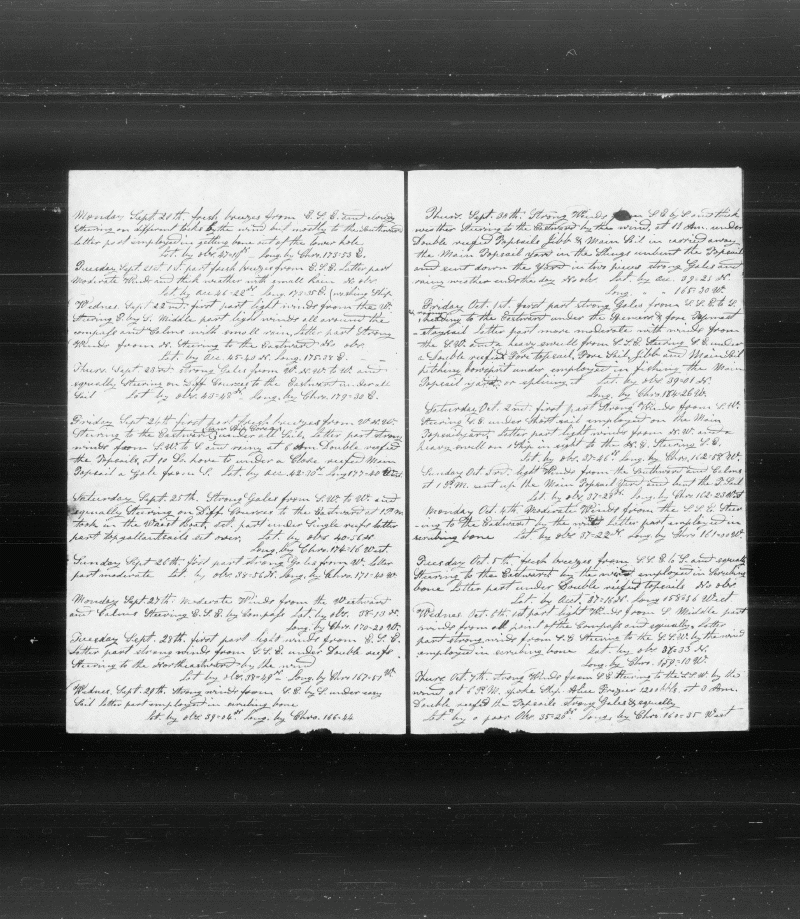 Monday Sept. 20th, fresh breezes from E. S. E. and cloudy
Steering on different tacks by the wind but mostly to the Southward
letter part employed in getting bone out of the lower hole
Lat. by obs. 47-19 N. Long. by Chro. 173-53 E.
Tuesday Sept. 21st 1st. part fresh breezes from E. S. E. Latter part
Moderate Winds and thick weather with small rain No obs
Lat by Acc 46-22 N. Long. 173-35 E.
Wednes. Sept 22nd. first part light winds from the W.
Steering E. by S. Middle part light winds all around the
compass and Calms with small rain, latter part Strong
Winds from N. Steering to the Eastward No obs
Lat. by Acc 45-41 N. Long. 175-38 E.
Thurs. Sept 23rd. Strong Gales from W. N. W. to W. and
squally Steering on Diff Courses to the Eastward under all
Sail Lat by obs. 43-48 N. Long. by Chro. 179-30 E.
Friday Sept 24th first part fresh breezes from W. N. W.
Steering to the Eastward under all Sail, Latter part strong
winds from S. W. to S and rain, at 6 Am Double reefed
the Topsails, at 10 hove to under a Close reefed Main
Topsail a Gale from S. Lat. by Acc. 42-10 N Long 177-40 West
Saturday Sept. 25th. Strong Gales from S. W. to W. and
squally Steering on Diff Courses to the Eastward at 1 P.M
took in the Waist Boat, lat. part under Single reefs latter
part top gallantsails set over. Lat. by obs 40-56 N
Long. by Chro. 174-16 West.
Sunday Sept 26th. first part strong Gales from W. latter
part moderate Lat. by obs. 38-56 N. Long. by Chro. 171-40 W.
Monday Sept 27th. Moderate Winds from the Westward
and Calms Steering E. S. E. by Compass Lat. by obs. 38-13 N.
Long. by Chro. 170-20 W.
Tuesday Sept. 28th, first part light winds from E. S. E.
latter part strong winds from S. S. E. under Double reefs
Steering to the Northeastward by the wind
Lat by obs. 38-49 N. Long. by Chro 167-57 W.
Wednes. Sept. 29th. Strong winds from S. E. by S. under easy
Sail latter part employed in scraping bone
Lat. by obs. 39-06 N Long. by Chro. 166-44
Thurs. Sept. 30th. Strong Winds from S. E. by S and thick
weather Steering to the Eastward by the wind, at 11 Am. under
Double reefed Topsails Jibb & Main Sail in carried away
the Main Topsail Yard in the Slings unbent the Topsail
and sent down the Yard in two pieces strong Gales and
rainy weather ends the day No obs Lat. by Acc 39-23 N
Long " 165-30 W.
Friday Oct. 1st. first part strong Gales from S. S. E. to S.
heading to the Eastward under the Spencer & fore Topmast
staysail latter part more moderate with winds from
the S. W. and a heavy swell from S. S. E. Steering S. E. under
a Double reefed Fore topsail, Fore Sail, Jibb and Main Sail
pitching bowsprit under employed in fishing the Main
Topsail yard, or splicing it Lat. by obs 39-01 N.
Long. by Chro. 164-26 W.
Saturday Oct. 2nd. first part Strong Winds from S. W.
Steering S. E. under short sail employed on the Main
Topsail yard, latter part light winds from N. W. and a
heavy swell on 1 Ship in sight to the N. E. Steering S. E.
Lat. by obs 37-46 N Long. by Chro. 162-58 W.
Sunday Oct 3rd. light Winds from the Southward and Calms
at 1 P.M. sent up the Main Topsail Yard and bent the T. Sail
Lat. by obs 37-28 N. Long. by Chro. 162-23 West
Monday Oct. 4th Moderate Winds from the S. S. E. Steer
-ing to the Eastward by the wind latter part employed in
scraping bone Lat by obs 37-22 N. Long by Chro 161-00 W.
Tuesday Oct. 5th. fresh breezes from S. S. E. to S. and squally
Steering to the Eastward by the wind employed in Scraping
bone Latter part under Double reefed topsails No obs
Lat. by Acct. 37-14 N. Long 158-56 West
Wednes Oct. 6th. 1st part light Winds from S Middle part
winds from all point of the Compass and squally, latter
part strong winds from S. E Steering to the S. S. W. by the wind
employed in scraping bone Lat. by obs 36-33 N.
Long by Chro. 159-10 W.
Thurs Oct. 7th. strong Winds from S. E Steering to the S. S. W. by the
wind at 6 P.M. spoke Ship Alice Frazier 1200 bbls, at 3 Am.
Double reefed the Topsails Strong Gales & squally
Lat. by a poor Obs. 35-26 N Long. by Chro. 160-35 West